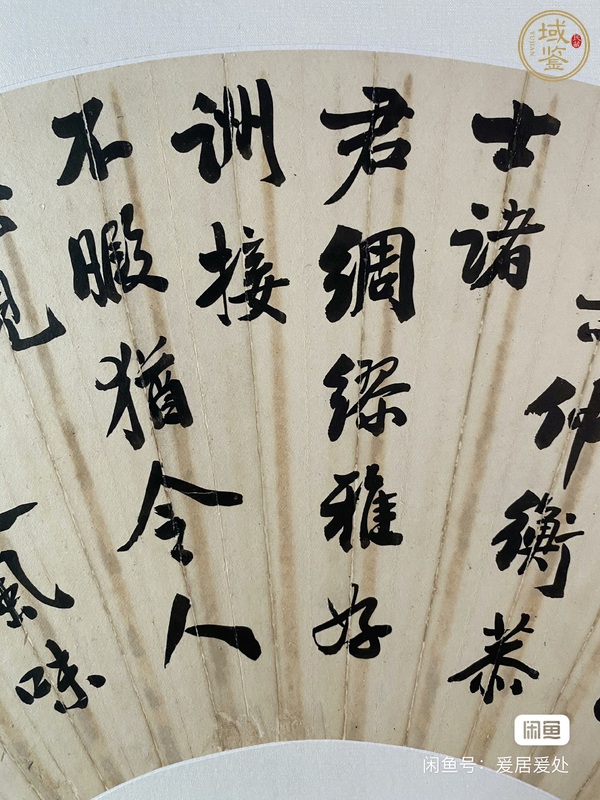 仲衡恭
士諸
君綢繆雅好
詶接
不暇猶令人
見
氣味
域鉴
YUJIAN
闲鱼
闲鱼号：爱居爱处